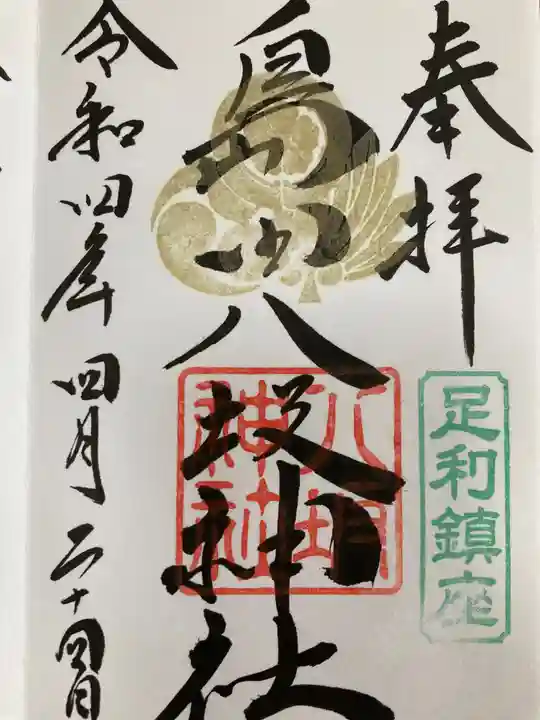 奉拝
足利鎮座
島田八坂神社
八坂神社
令和四年四月二十四日